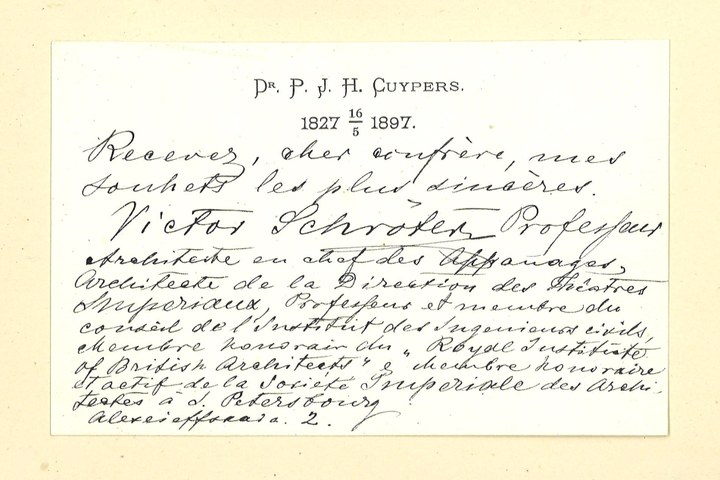 Dr. P. J. H. Cuypers.
1827 16/5 1897.
Recevez, cher confrère, mes
souhets les plus sincères.
Victor Schröter, Professeur
Architecte en chef des Appanages,
Architecte de la Direction des Théatres
Imperiaux, Professeur et membre du
conseil de l'Institut des Ingenieurs civils,
Membre honorair du „Royal Institute
of British Architects" & Membre honoraire
et actif de la Société Imperiale des Archi-
tectes à S. Petersbourg
Alexeieffskaia. 2.